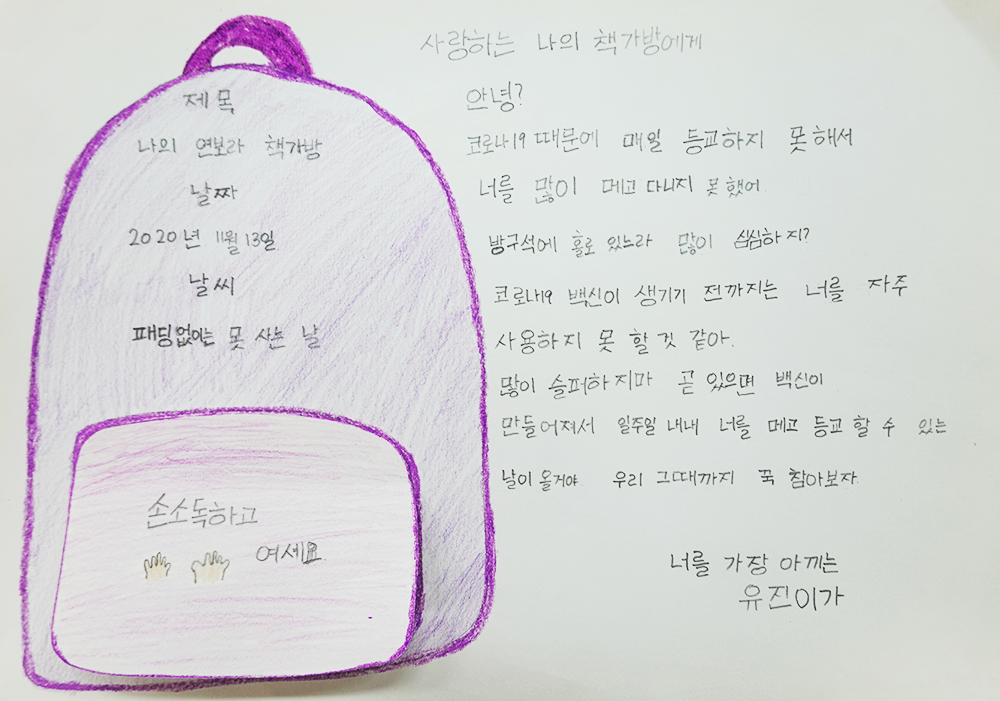 제목
나의 연보라 책가방
날짜
2020년 11월 13일
날씨
패딩없이는 못 사는 날
손소독하고
여세요
사랑하는 나의 책가방에게
안녕?
코로나19 때문에 매일 등교하지 못해서
너를 많이 메고 다니지 못했어
방구석에 홀로 있느라 많이 심심하지?
코로나19 백신이 생기기 전까지는 너를 자주
사용하지 못 할 것 같아.
많이 슬퍼하지마 곧 있으면 백신이
만들어져서 일주일 내내 너를 메고 등교 할 수 있는
날이 올거야 우리 그때까지 꾹 참아보자.
너를 가장 아끼는
유진이가